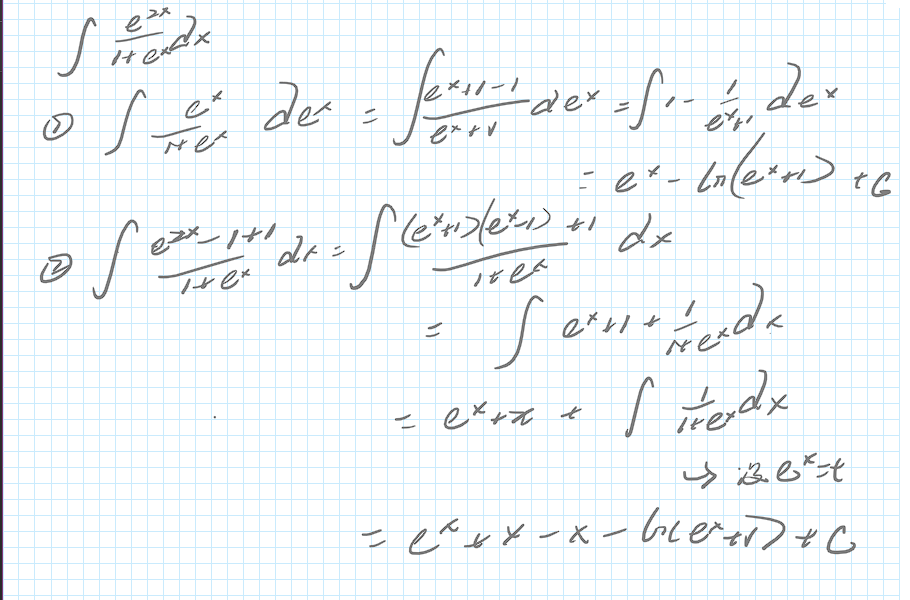 ∫ e^{2x}/(1+e^x) dx
① ∫ e^x/(1+e^x) de^x = ∫ (e^x+1-1)/(e^x+1) de^x = ∫ 1 - 1/(e^x+1) de^x
= e^x - ln(e^x+1) + C
② ∫ (e^{2x}-1+1)/(1+e^x) dx = ∫ ((e^x+1)(e^x-1)+1)/(1+e^x) dx
= ∫ e^x+1 + 1/(1+e^x) dx
= e^x+x + ∫ 1/(1+e^x) dx
↪ 设 e^x=t
= e^x + x - x - ln(e^x+1) + C